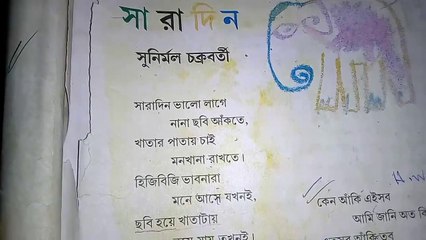 সারাদিন
সুনির্মল চক্রবর্তী
সারাদিন ভালো লাগে
নানা ছবি আঁকতে,
খাতার পাতায় চাই
মনখানা রাখতে।
হিজিবিজি ভাবনারা
মনে আসে যখনই,
ছবি হয়ে খাতাটায়
যায় তখনই।
কেন আঁকি এইসব
আমি জানি অত কি